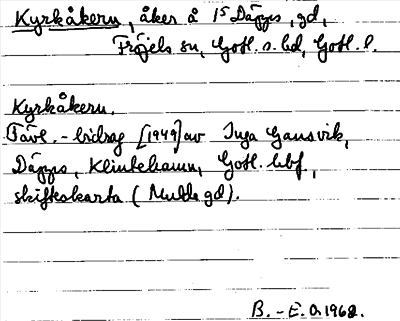 Kyrkåkern, åker å 15 Däpps, gd,
Fröjels sn, Gotl. s. hd, Gotl. l.
Kyrkåkern.
Tävl.-bidrag [1949] av Inga Gansvik,
Däpps, Klintehamn, Gotl. hbf,
skifteskarta (Mulde gd).
B.-E. O. 1968.